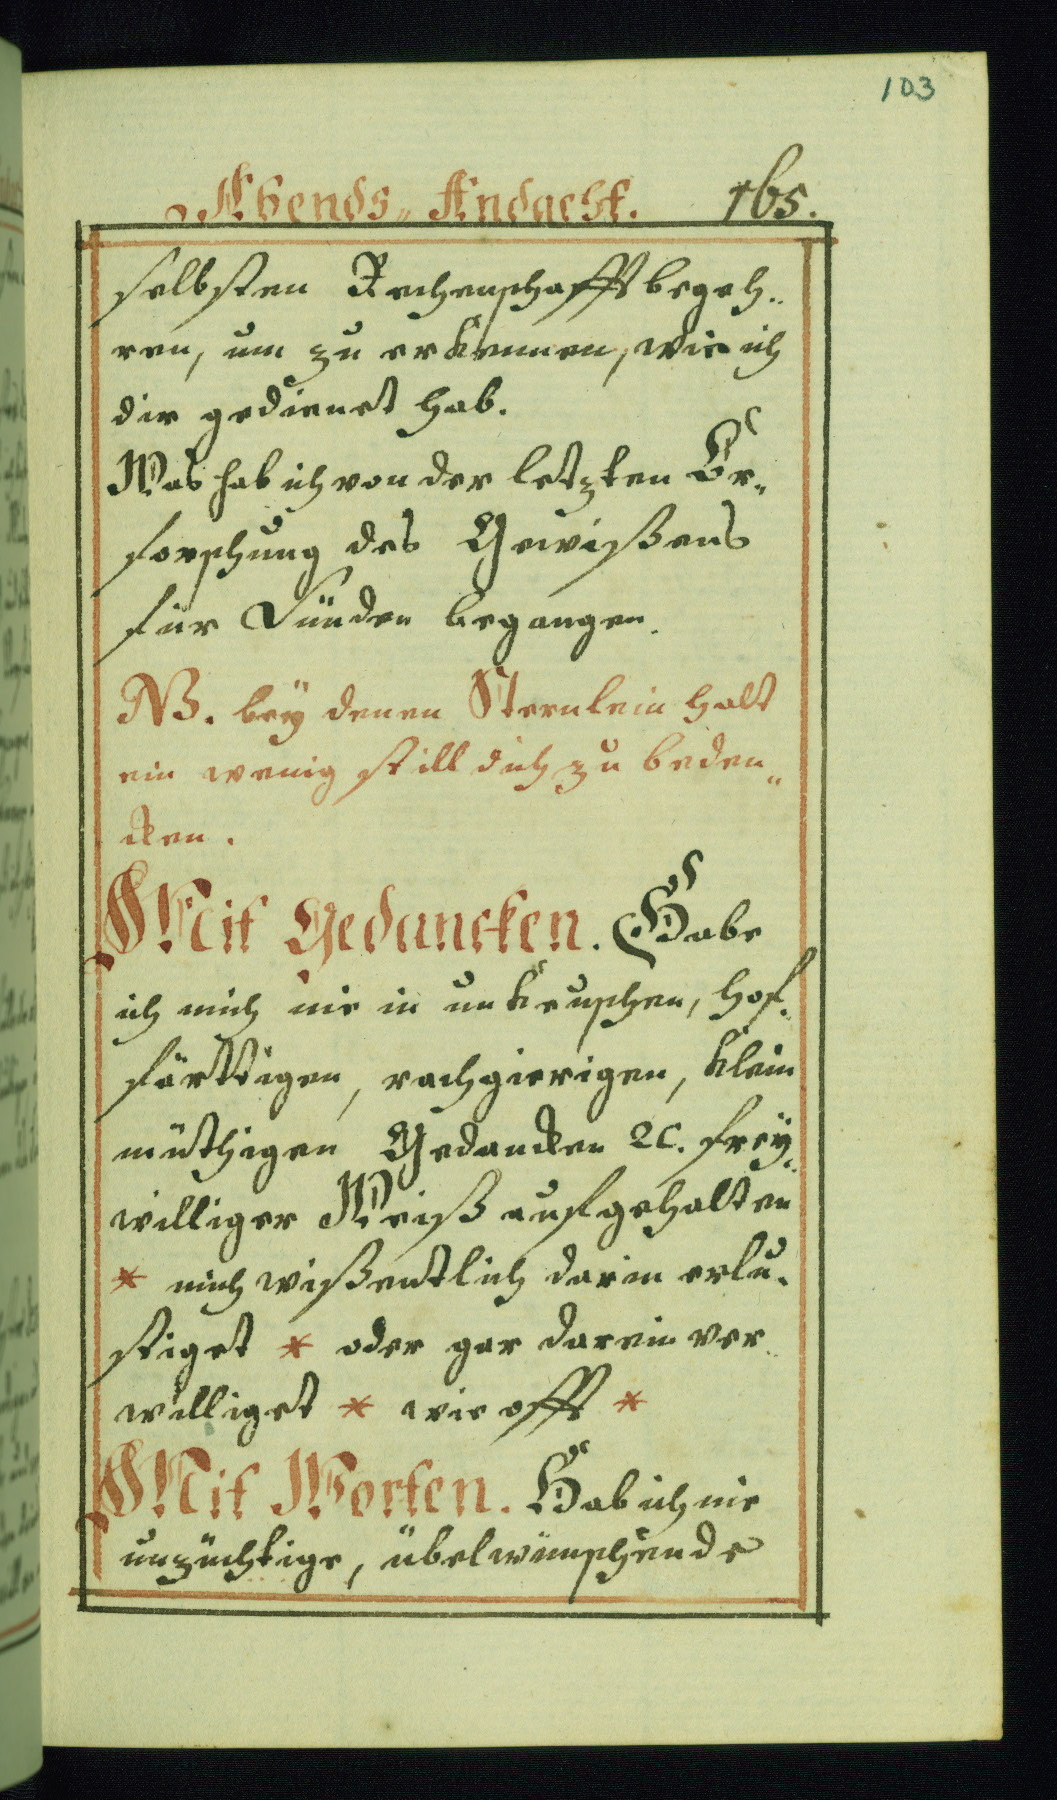 103
Abends„ Andacht. 165.
selbsten Rechenschafft begeh„
ren, um zu erkennen, wie ich
dir gedienet hab.
Was hab ich von der letzten Er„
forschung des Gewißens
für Sünden begangen.
NB. bey denen Sternlein halt
ein wenig still dich zu beden„
cken.
Mit Gedancken. Habe
ich mich nie in unkeuschen, hof„
färttigen, rachgierigen, klein
müthigen Gedancken ꝛc. frey„
williger Weiß aufgehalten
* mich wißentlich darin erlu„
stiget * oder gar darein ver„
williget * wie offt *
Mit Worten. Hab ich nie
unzüchtige, übelwünschende